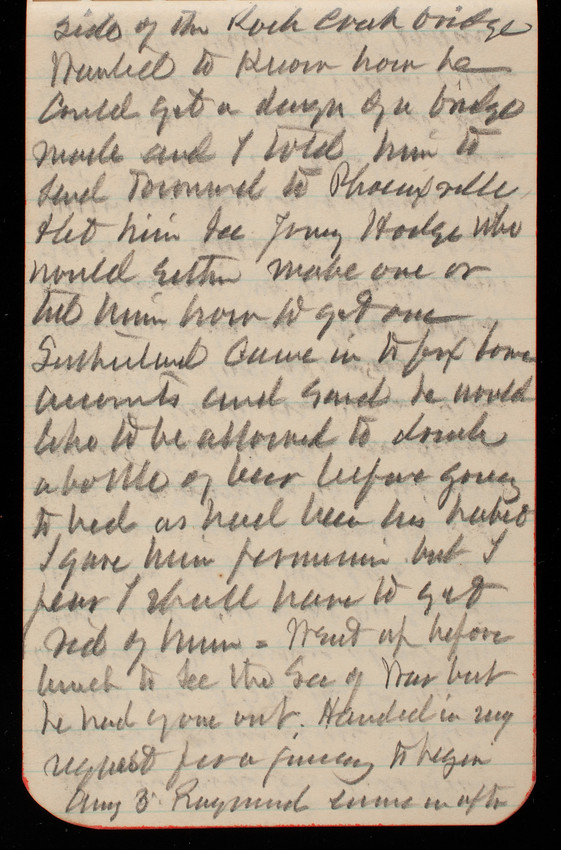 side of the Rock Creek bridge
Wanted to know how he
could get a design of a bridge
made and I told him to
send Townsend to Phoenixville
& let him see Jonny Hodge who
would either make one or
tell him how to get one
Sutherland came in to fix some
accounts and said he would
like to be allowed to drink
a bottle of beer before going
to bed as had been his habit
I gave him permission but I
fear I shall have to get
rid of him = Went up before
lunch to see the Sec of War but
he had gone out. Handed in my
request for a to begin
Aug 3 Raymond came in after